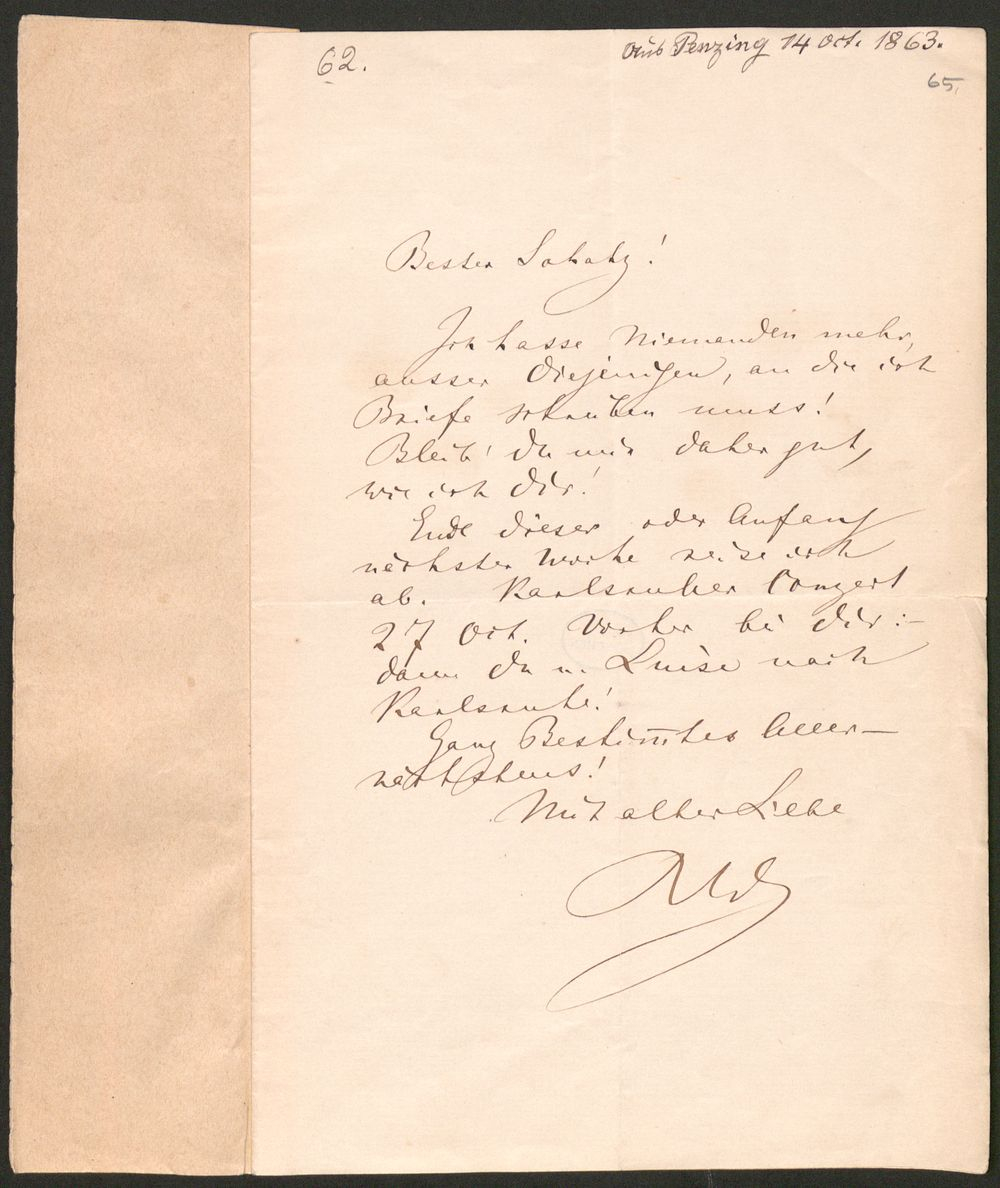 62.
Aus Penzing 14 Oct. 1863.
65.
Bester Schatz!
Ich hasse Niemanden mehr,
ausser diejenigen, an die ich
Briefe schreiben muss!
Bleib' du mir daher gut,
wie ich dir!
Ende dieser oder Anfang
nächster Woche reise ich
ab. Karlsruher Conzert
27 Oct. Vorher bei dir:–
dann du u. Luise nach
Karlsruhe!
Ganz Bestim̅tes Aller–
nächstens!
Mit alter Liebe